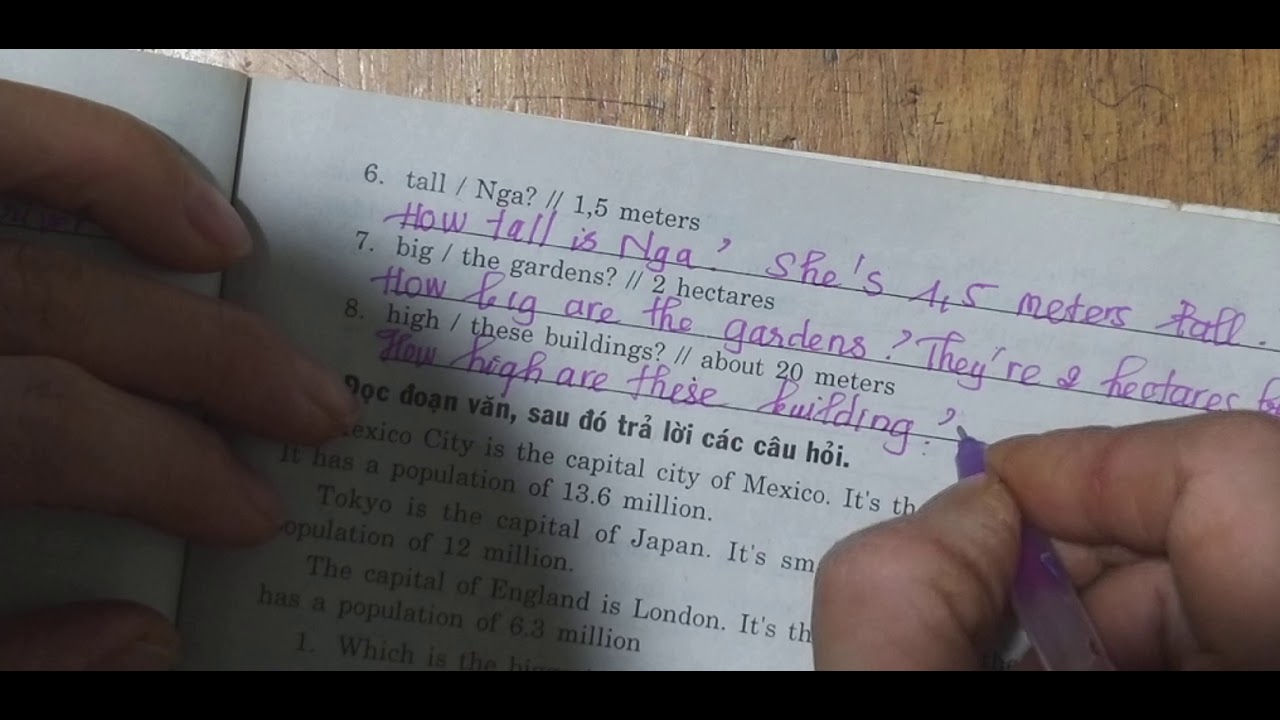 6. tall / Nga? // 1,5 meters
How tall is Nga? She's 1,5 meters tall.
7. big / the gardens? // 2 hectares
How big are the gardens? They're 2 hectares
8. high / these buildings? // about 20 meters
How high are these building?
Đọc đoạn văn, sau đó trả lời các câu hỏi.
Mexico City is the capital city of Mexico. It's
It has a population of 13.6 million.
Tokyo is the capital of Japan. It's
population of 12 million.
The capital of England is London. It's
has a population of 6.3 million
1. Which is the